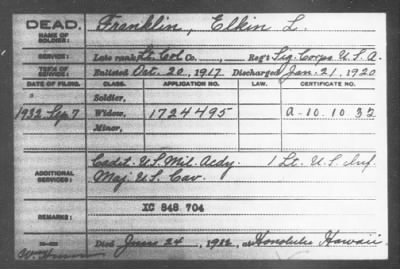 DEAD.
NAME OF SOLDIER:
Franklin, Elkin L.
SERVICE:
Late rank, Lt. Col Co. Reg't Sig. Corps U.S.A.
TERM OF SERVICE:
Enlisted Oct. 20, 1917 Discharged Jan. 21, 1920
DATE OF FILING. CLASS. APPLICATION NO. LAW. CERTIFICATE NO.
Soldier,
1932 Sep 7 Widow, 1724495 A-10.10.32
Minor,
ADDITIONAL SERVICES:
Cadet. U.S. Mil. Acdy. 1 Lt. U.S. Inf.
Maj. U.S. Cav.
REMARKS:
XC 848 704
Died June 24, 1932, at Honolulu Hawaii.